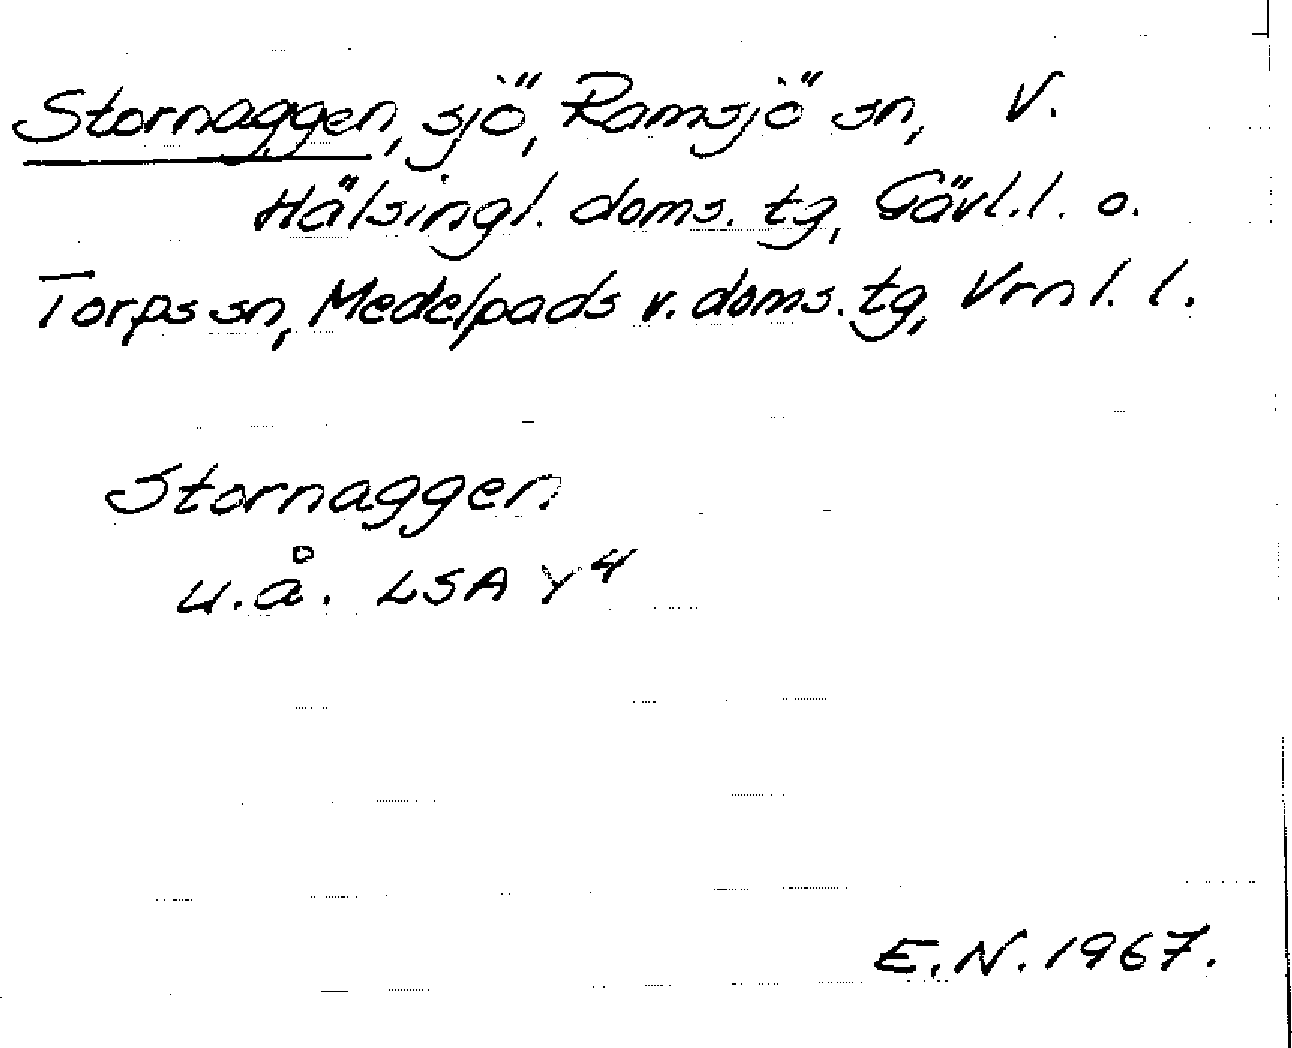 Stornaggen, sjö, Ramsjö sn, V.
Hälsingl. doms. tg, Gävl.l. o.
Torps sn, Medelpads v. doms. tg, Vrnl. l.
Stornaggen
u.å. LSA Y4
E.N. 1967.